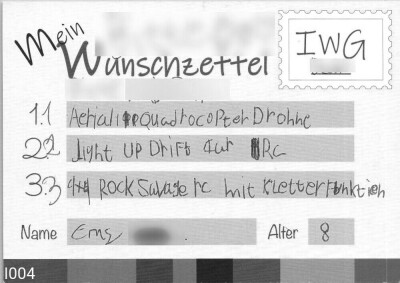 Mein
Wunschzettel
IWG
1.1 Aerial Quadrocopter Drohne
2.2 Light UP Drift 4ur RC
3.3 4x4 Rock Savage rc mit Kletterfunktion
Name Emg Alter 8
I004